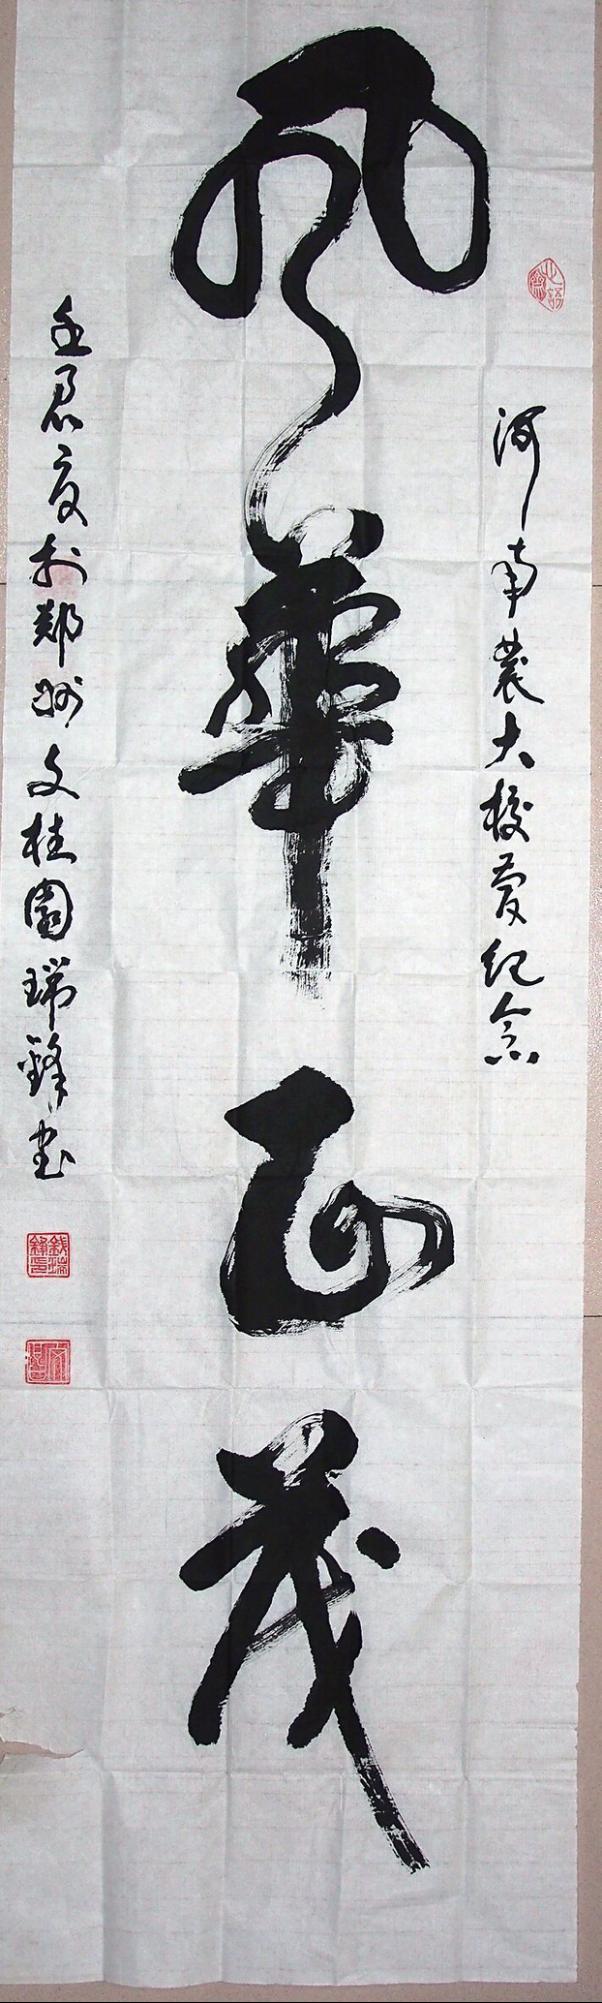 河南农大校庆纪念
風華正茂
壬辰夏於鄭州文桂園瑞鋒书